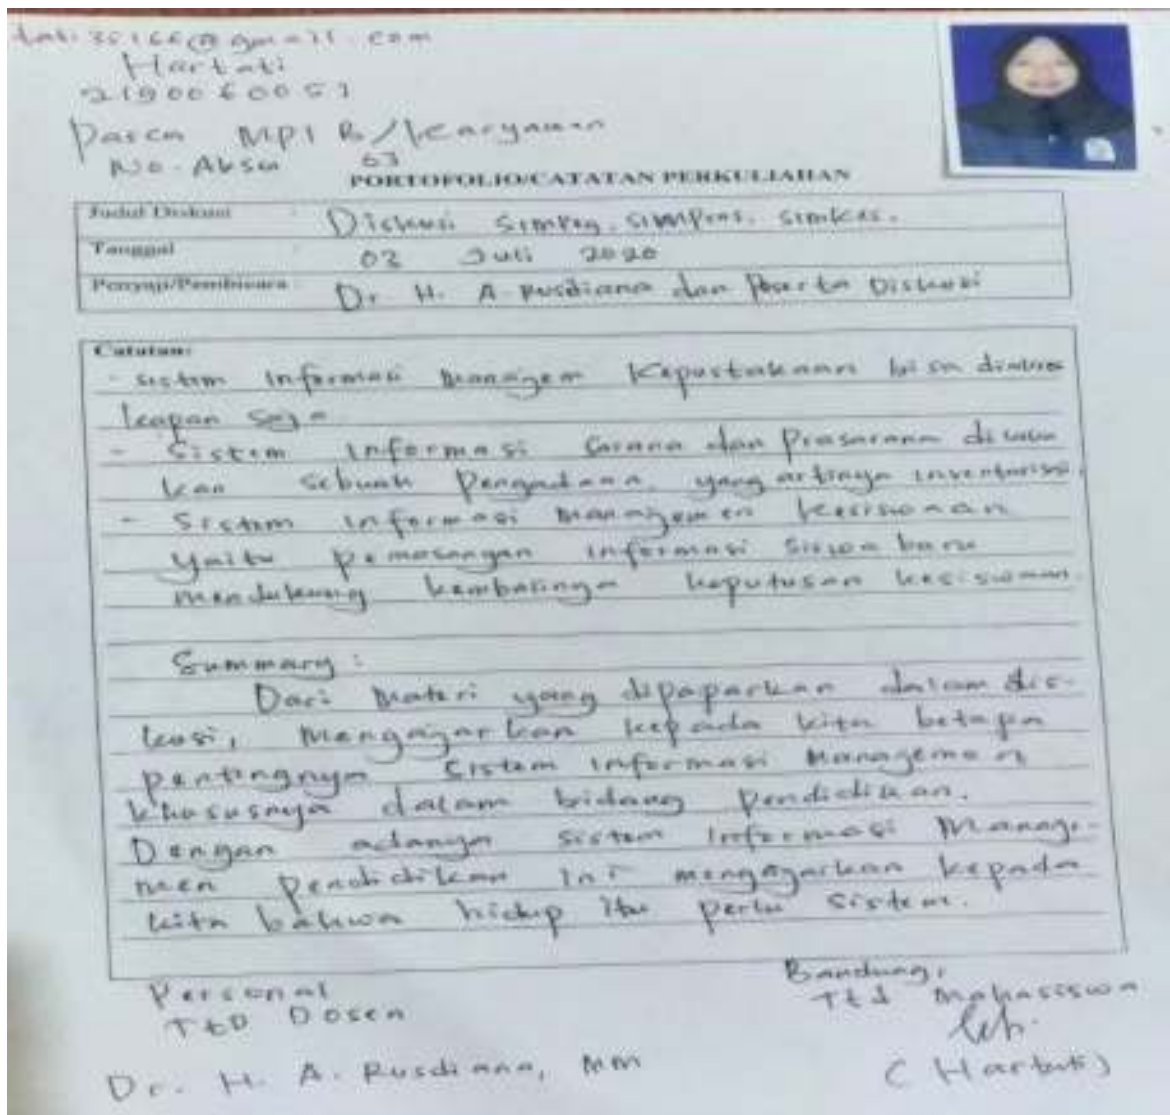 Hartati
2190060051
Pasca MPI B/karyawan
No. Absen 63
PORTOFOLIO/CATATAN PERKULIAHAN
Judul Diskusi : Diskusi Simpeg. SIMPras. Simkes.
Tanggal : 02 Juli 2020
Penyaji/Pembicara : Dr. H. A. Rusdiana dan Peserta Diskusi
Catatan:
- sistem informasi manajem Kepustakaan bisa diakses
kapan saja
- Sistem informasi sarana dan Prasarana
kan sebuah Pengadaan, yang artinya inventarisasi.
- Sistem informasi manajemen kesiswaan
Yaitu pemasangan informasi siswa baru
mendukung kembalinya keputusan kesiswaan.
Summary :
Dari Materi yang dipaparkan dalam dis-
kusi, mengajarkan kepada kita betapa
pentingnya sistem informasi Managemen
khususnya dalam bidang pendidikan.
Dengan adanya sistem informasi Manage-
men pendidikan ini mengajarkan kepada
kita bahwa hidup itu perlu sistem.
Bandung,
Personal Ttd Mahasiswa
TtD Dosen
Dr. H. A. Rusdiana, MM (Hartati)